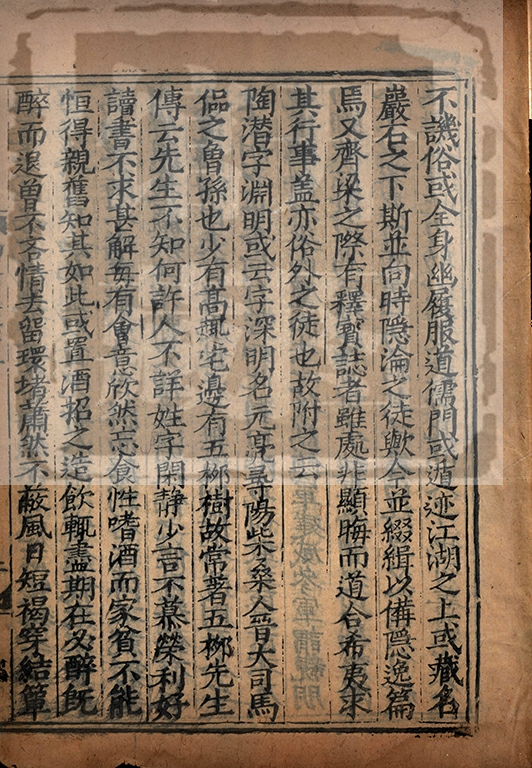 不譏俗或全身幽履服道儒門或遁迹江湖之上或藏名
巖石之下斯並向時隱淪之徒歟今並綴緝以備隱逸篇
焉又齊梁之際有釋寶誌者雖處非顯晦而道合希夷求
其行事盖亦俗外之徒也故附之云
陶潛字淵明或云字深明名元亮尋陽柴桑人晉大司馬
侃之曾孫也少有高趣宅邊有五栁樹故常著五栁先生
傳云先生不知何許人不詳姓字閑静少言不慕榮利好
讀書不求甚解每有會意欣然忘食性嗜酒而家貧不能
恒得親舊知其如此或置酒招之造飲輒盡期在必醉旣
醉而退曾不吝情去留環堵蕭然不蔽風日短褐穿結簞